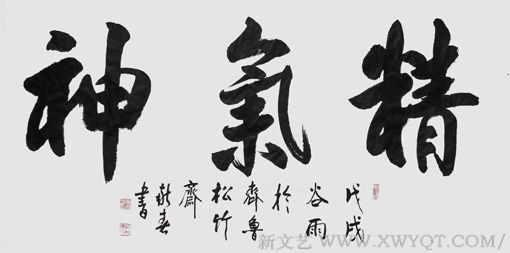 精氣神
戊戌
谷雨
於
齊魯
松竹
齋
新春
書
新文艺 WWW.XWYQT.COM/